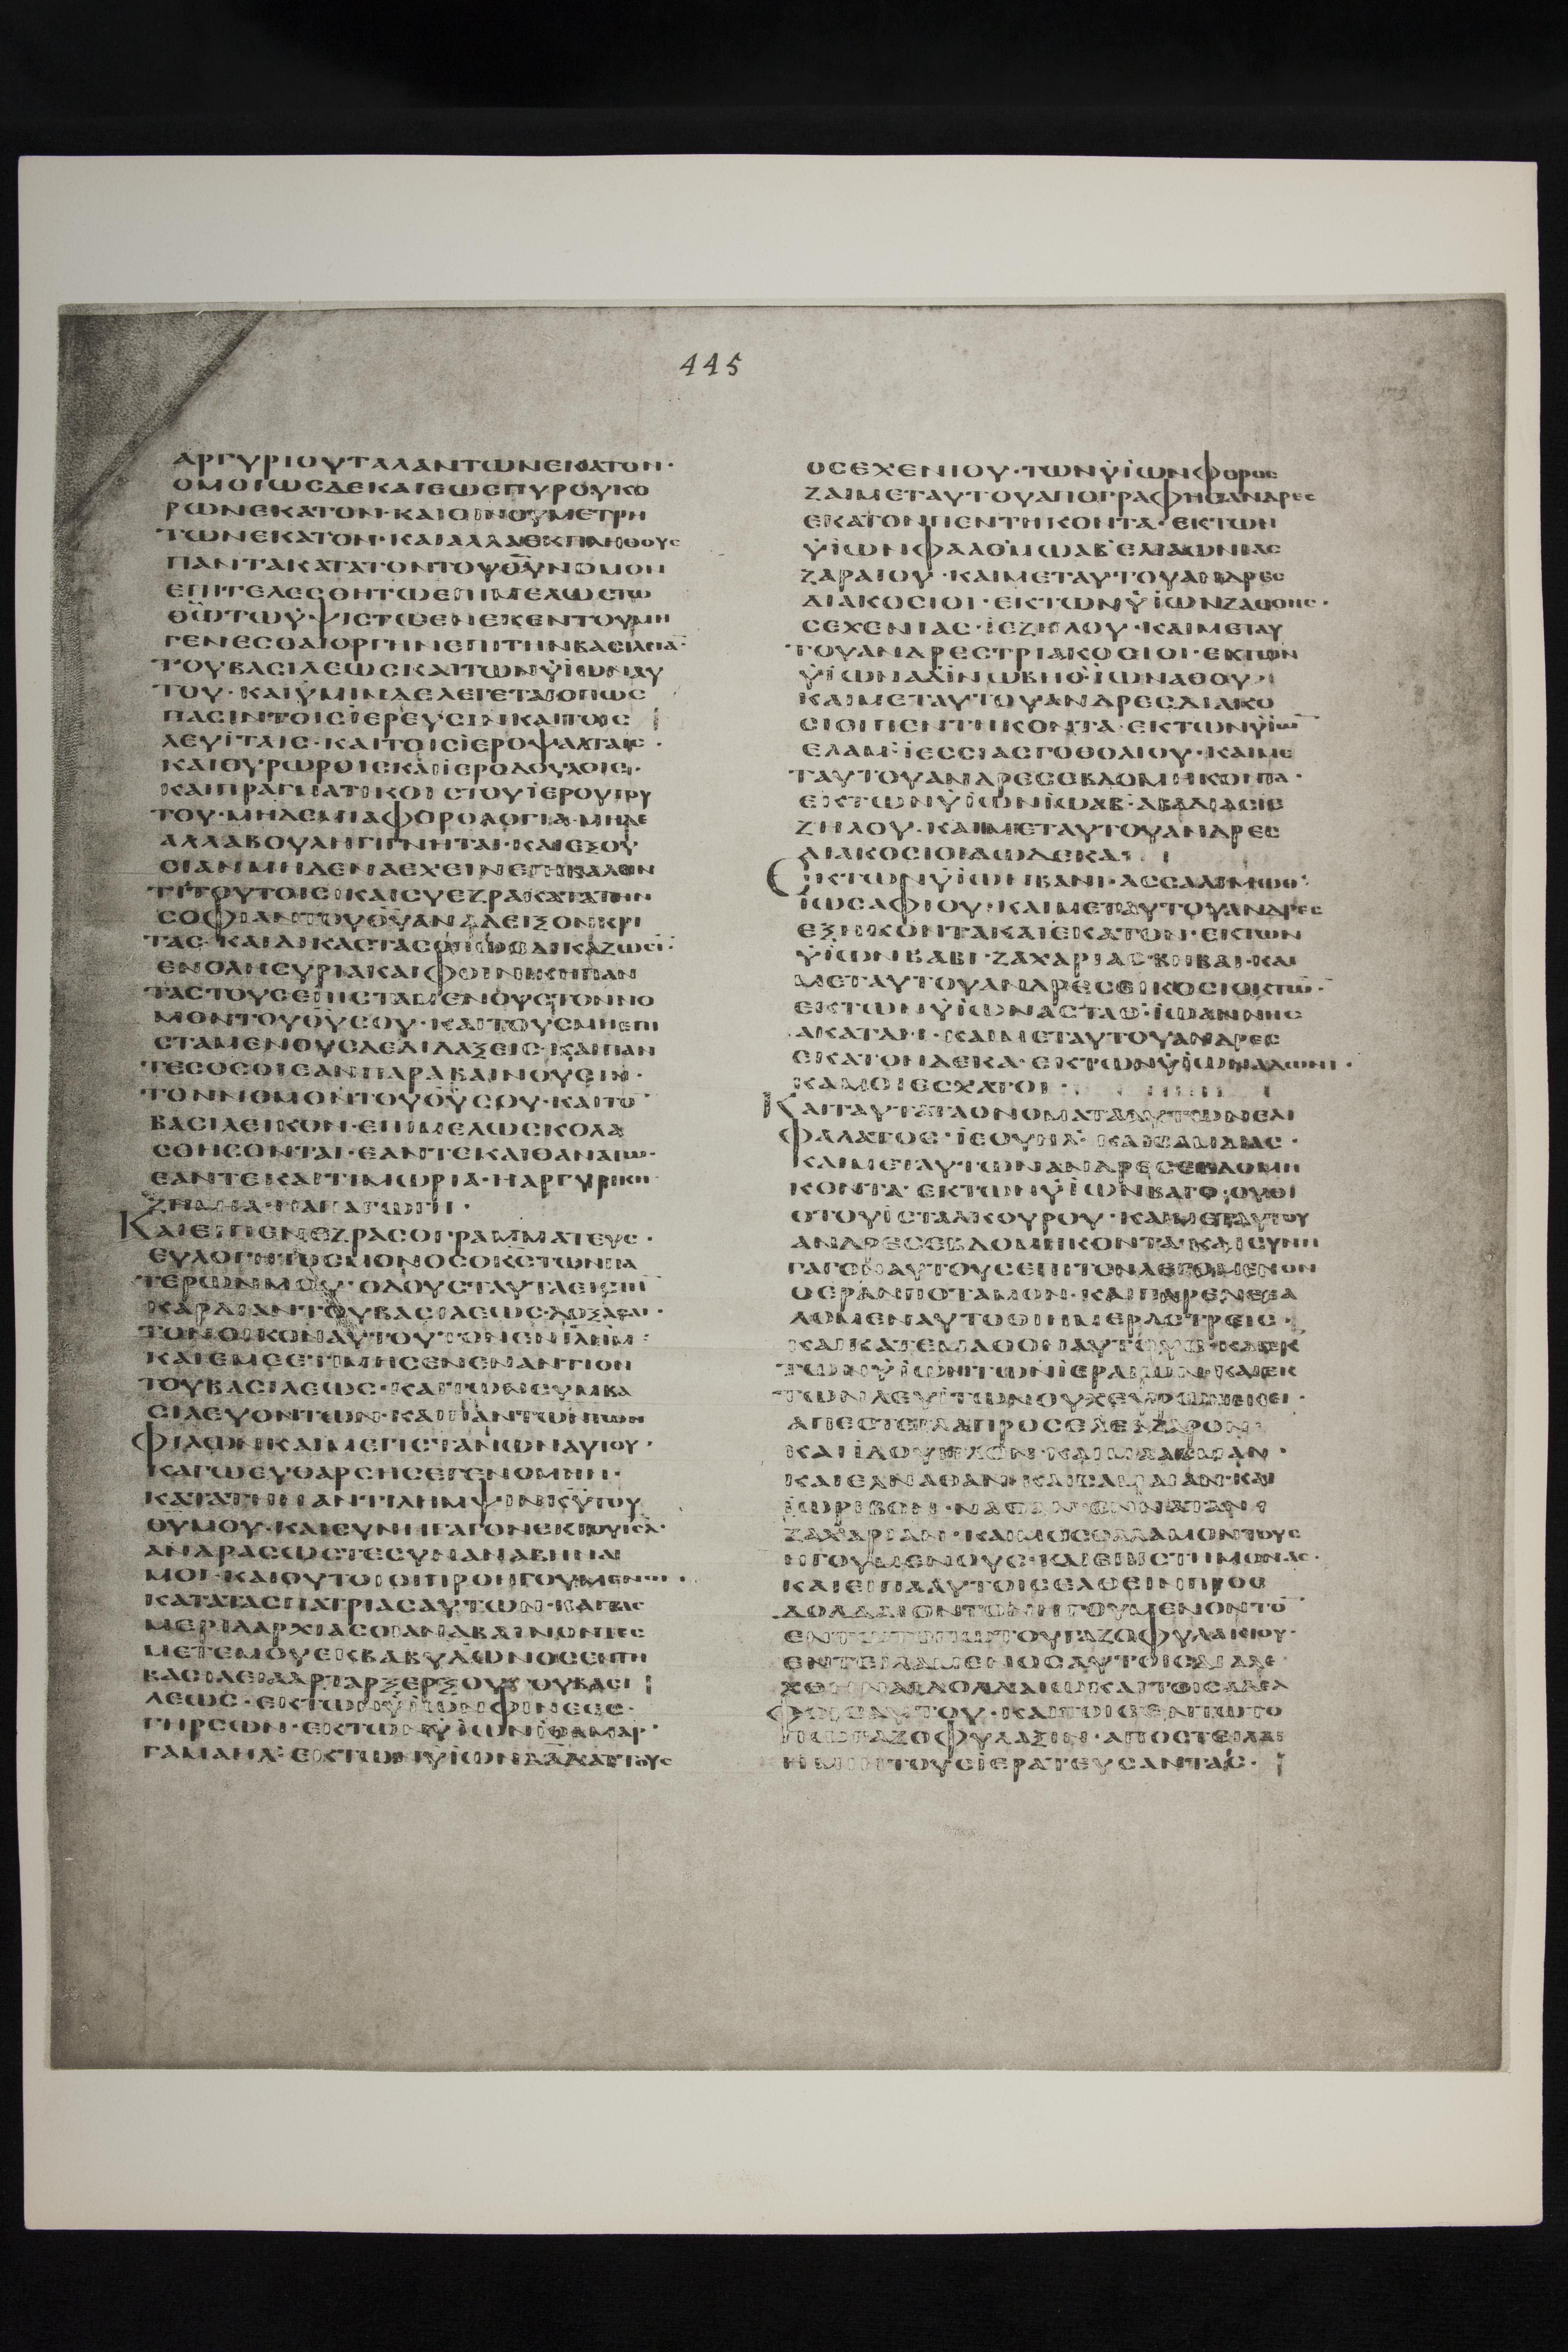 445
ΑΡΓΥΡΙΟΥΤΑΛΑΝΤΩΝΕΚΑΤΟΝ·
ΟΜΟΙΩΣΔΕΚΑΙΕΩΣΠΥΡΟΥΚΟ
ΡΩΝΕΚΑΤΟΝ·ΚΑΙΟΙΝΟΥΜΕΤΡΗ
ΤΩΝΕΚΑΤΟΝ·ΚΑΙΑΛΛΑΕΚΠΛΗΘΟΥΣ
ΠΑΝΤΑΚΑΤΑΤΟΝΤΟΥΘΥΝΟΜΟΝ
ΕΠΙΤΕΛΕΣΘΗΤΩΕΠΙΜΕΛΩΣΤΩ
ΘΩΤΩΫΨΙΣΤΩΕΝΕΚΕΝΤΟΥΜΗ
ΓΕΝΕΣΘΑΙΟΡΓΗΝΕΠΙΤΗΝΒΑΣΙΛΕΙΑ
ΤΟΥΒΑΣΙΛΕΩΣΚΑΙΤΩΝΫΙΩΝΑΥ
ΤΟΥ·ΚΑΙΫΜΙΝΔΕΛΕΓΕΤΑΙΟΠΩΣ
ΠΑΣΙΝΤΟΙΣΪΕΡΕΥΣΙΝΚΑΙΤΟΙΣ
ΛΕΥΪΤΑΙΣ·ΚΑΙΤΟΙΣΪΕΡΟΨΑΛΤΑΙΣ·
ΚΑΙΘΥΡΩΡΟΙΣΚΑΙΪΕΡΟΔΟΥΛΟΙΣ·
ΚΑΙΠΡΑΓΜΑΤΙΚΟΙΣΤΟΥΪΕΡΟΥΤΟΥ
ΤΟΥ·ΜΗΔΕΜΙΑΦΟΡΟΛΟΓΙΑ·ΜΗΔΕ
ΑΛΛΑΒΟΥΛΗΓΙΓΝΗΤΑΙ·ΚΑΙΕΞΟΥ
ΣΙΑΝΜΗΔΕΝΑΕΧΕΙΝΕΠΙΒΑΛΕΙΝ
ΤΙΤΟΥΤΟΙΣ·ΚΑΙΣΥΕΖΡΑΚΑΤΑΤΗΝ
ΣΟΦΙΑΝΤΟΥΘΥΑΝΑΔΕΙΞΟΝΚΡΙ
ΤΑΣ·ΚΑΙΔΙΚΑΣΤΑΣΟΠΩΣΔΙΚΑΖΩΣΙ
ΕΝΟΛΗΣΥΡΙΑΚΑΙΦΟΙΝΙΚΗΠΑΝ
ΤΑΣΤΟΥΣΕΠΙΣΤΑΜΕΝΟΥΣΤΟΝΝΟ
ΜΟΝΤΟΥΘΥΣΟΥ·ΚΑΙΤΟΥΣΜΗΕΠΙ
ΣΤΑΜΕΝΟΥΣΔΕΔΙΔΑΞΕΙΣ·ΚΑΙΠΑΝ
ΤΕΣΟΣΟΙΕΑΝΠΑΡΑΒΑΙΝΟΥΣΙΝ·
ΤΟΝΝΟΜΟΝΤΟΥΘΥΣΟΥ·ΚΑΙΤΟ
ΒΑΣΙΛΕΙΚΟΝ·ΕΠΙΜΕΛΩΣΚΟΛΑ
ΣΘΗΣΟΝΤΑΙ·ΕΑΝΤΕΚΑΙΘΑΝΑΤΩ·
ΕΑΝΤΕΚΑΙΤΙΜΩΡΙΑ·ΗΑΡΓΥΡΙΚΗ
ΖΗΜΙΑ·ΗΑΠΑΓΩΓΗ·
ΚΑΙΕΙΠΕΝΕΖΡΑΣΟΓΡΑΜΜΑΤΕΥΣ·
ΕΥΛΟΓΗΤΟΣΜΟΝΟΣΟΚΣΤΩΝΠΑ
ΤΕΡΩΝΜΟΥ·ΟΔΟΥΣΤΑΥΤΑΕΙΣΤΗ
ΚΑΡΔΙΑΝΤΟΥΒΑΣΙΛΕΩΣ·ΔΟΞΑΣΑΙ·
ΤΟΝΟΙΚΟΝΑΥΤΟΥΤΟΝΕΝΙΛΗΜ:
ΚΑΙΕΜΕΕΤΙΜΗΣΕΝΕΝΑΝΤΙΟΝ
ΤΟΥΒΑΣΙΛΕΩΣ·ΚΑΙΤΩΝΣΥΜΒΑ
ΣΙΛΕΥΟΝΤΩΝ·ΚΑΙΠΑΝΤΩΝΤΩΝ
ΦΙΛΩΝΚΑΙΜΕΓΙΣΤΑΝΩΝΑΥΤΟΥ·
ΚΑΓΩΕΥΘΑΡΣΗΣΕΓΕΝΟΜΗΝ·
ΚΑΤΑΤΗΝΑΝΤΙΛΗΜΨΙΝΚΥΤΟΥ
ΘΥΜΟΥ·ΚΑΙΣΥΝΗΓΑΓΟΝΕΚΤΟΥΙΣΛ·
ΑΝΔΡΑΣΩΣΤΕΣΥΝΑΝΑΒΗΝΑΙ
ΜΟΙ·ΚΑΙΟΥΤΟΙΟΙΠΡΟΗΓΟΥΜΕΝΟΙ·
ΚΑΤΑΤΑΣΠΑΤΡΙΑΣΑΥΤΩΝ·ΚΑΙΤΑΣ
ΜΕΡΙΔΑΡΧΙΑΣΟΙΑΝΑΒΑΙΝΟΝΤΕΣ
ΜΕΤΕΜΟΥΕΚΒΑΒΥΛΩΝΟΣΕΝΤΗ
ΒΑΣΙΛΕΙΑΑΡΤΑΡΞΕΡΞΟΥΤΟΥΒΑΣΙ
ΛΕΩΣ·ΕΚΤΩΝΫΙΩΝΦΙΝΕΕΣ·
ΓΗΡΣΩΝ·ΕΚΤΩΝΫΙΩΝΪΘΑΜΑΡ·
ΓΑΜΑΗΛ·ΕΚΤΩΝΫΙΩΝΔΑΔΑΤΤΟΥΣ
ΟΣΕΧΕΝΙΟΥ·ΤΩΝΫΙΩΝΦΟΡΟΣ
ΖΑΙΜΕΤΑΥΤΟΥΑΠΟΓΡΑΦΗΣΑΝΔΡΕΣ
ΕΚΑΤΟΝΠΕΝΤΗΚΟΝΤΑ·ΕΚΤΩΝ
ΫΙΩΝΦΑΑΘΜΩΑΒ·ΕΛΙΑΩΝΙΑΣ
ΖΑΡΑΙΟΥ·ΚΑΙΜΕΤΑΥΤΟΥΑΝΔΡΕΣ
ΔΙΑΚΟΣΙΟΙ·ΕΚΤΩΝΫΙΩΝΖΑΘΟΗΣ·
ΣΕΧΕΝΙΑΣ·ΪΕΖΗΛΟΥ·ΚΑΙΜΕΤΑΥ
ΤΟΥΑΝΔΡΕΣΤΡΙΑΚΟΣΙΟΙ·ΕΚΤΩΝ
ΫΙΩΝΑΔΙΝΩΒΗΘ·ΪΩΝΑΘΟΥ
ΚΑΙΜΕΤΑΥΤΟΥΑΝΔΡΕΣΔΙΑΚΟ
ΣΙΟΙΠΕΝΤΗΚΟΝΤΑ·ΕΚΤΩΝΫΙΩ
ΕΛΑΜ·ΪΕΣΣΙΑΣΓΟΘΟΛΙΟΥ·ΚΑΙΜΕ
ΤΑΥΤΟΥΑΝΔΡΕΣΕΒΔΟΜΗΚΟΝΤΑ·
ΕΚΤΩΝΫΙΩΝΪΩΑΒ·ΑΒΑΔΙΑΣΙΕ
ΖΗΛΟΥ·ΚΑΙΜΕΤΑΥΤΟΥΑΝΔΡΕΣ
ΔΙΑΚΟΣΙΟΙΔΩΔΕΚΑ·
ΕΚΤΩΝΫΙΩΝΒΑΝΙ·ΑΣΣΑΛΙΜΩΘ·
ΪΩΣΑΦΙΟΥ·ΚΑΙΜΕΤΑΥΤΟΥΑΝΔΡΕΣ
ΕΞΗΚΟΝΤΑΚΑΙΕΚΑΤΟΝ·ΕΚΤΩΝ
ΫΙΩΝΒΑΒΙ·ΖΑΧΑΡΙΑΣ·ΒΗΒΑΙ·ΚΑΙ
ΜΕΤΑΥΤΟΥΑΝΔΡΕΣΕΙΚΟΣΙΟΚΤΩ·
ΕΚΤΩΝΫΙΩΝΑΣΤΑΘ·ΪΩΑΝΝΗΣ
ΑΚΑΤΑΝ·ΚΑΙΜΕΤΑΥΤΟΥΑΝΔΡΕΣ
ΕΚΑΤΟΝΔΕΚΑ·ΕΚΤΩΝΫΙΩΝΑΔΩΝΙ·
ΚΑΜΟΙΕΣΧΑΤΟΙ·
ΚΑΙΤΑΥΤΑΤΑΟΝΟΜΑΤΑΑΥΤΩΝΕΛΙ
ΦΑΛΑΤΟΣ·ΪΕΟΥΗΛ·ΚΑΙΣΑΜΑΙΑΣ·
ΚΑΙΜΕΤΑΥΤΩΝΑΝΔΡΕΣΕΒΔΟΜΗ
ΚΟΝΤΑ·ΕΚΤΩΝΫΙΩΝΒΑΓΟ·ΟΥΘΙ
ΟΤΟΥΙΣΤΑΛΚΟΥΡΟΥ·ΚΑΙΜΕΤΑΥΤΟΥ
ΑΝΔΡΕΣΕΒΔΟΜΗΚΟΝΤΑ·ΚΑΙΣΥΝΗ
ΓΑΓΟΝΑΥΤΟΥΣΕΠΙΤΟΝΛΕΓΟΜΕΝΟΝ
ΘΕΡΑΝΠΟΤΑΜΟΝ·ΚΑΙΠΑΡΕΝΕΒΑ
ΛΟΜΕΝΑΥΤΟΘΙΗΜΕΡΑΣΤΡΕΙΣ·
ΚΑΙΚΑΤΕΜΑΘΟΝΑΥΤΟΥΣ·ΚΑΙΕΚ
ΤΩΝΫΙΩΝΤΩΝΪΕΡΑΙΩΝ·ΚΑΙΕΚ
ΤΩΝΛΕΥΪΤΩΝΟΥΧΕΥΡΩΝΕΚΕΙ·
ΑΠΕΣΤΕΙΛΑΠΡΟΣΕΛΕΑΖΑΡΟΝ
ΚΑΙΪΔΟΥΗΛΟΝ·ΚΑΙΜΑΑΣΜΑΝ·
ΚΑΙΕΛΝΑΘΑΝ·ΚΑΙΣΑΜΑΙΑΝ·ΚΑΙ
ΪΩΡΙΒΟΝ·ΝΑΘΑΝ·ΕΝΝΑΤΑΝ
ΖΑΧΑΡΙΑΝ·ΚΑΙΜΟΣΟΛΛΑΜΟΝΤΟΥΣ
ΗΓΟΥΜΕΝΟΥΣ·ΚΑΙΕΠΙΣΤΗΜΟΝΑΣ·
ΚΑΙΕΙΠΑΑΥΤΟΙΣΕΛΘΕΙΝΠΡΟΣ
ΛΟΔΑΔΙΟΝΤΟΝΗΓΟΥΜΕΝΟΝΤΟ
ΕΝΤΩΤΟΠΩΤΟΥΓΑΖΟΦΥΛΑΚΙΟΥ·
ΕΝΤΕΙΛΑΜΕΝΟΣΑΥΤΟΙΣΔΙΑΛΕ
ΧΘΗΝΑΙΛΟΔΑΙΩΚΑΙΤΟΙΣΑΔΕΛ
ΦΟΙΣΑΥΤΟΥ·ΚΑΙΤΟΙΣΕΝΤΩΤΟ
ΠΩΓΑΖΟΦΥΛΑΞΙΝ·ΑΠΟΣΤΕΙΛΑΙ
ΗΜΙΝΤΟΥΣΙΕΡΑΤΕΥΣΑΝΤΑΣ·